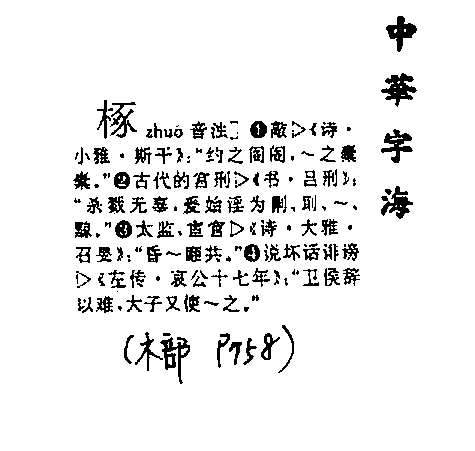 中華字海
椓 zhuó 音浊］❶敲▷《诗·
小雅·斯干》：“约之阁阁，～之橐
橐。”❷古代的宫刑▷《书·吕刑》：
“杀戮无辜，爰始淫为劓、刵、～、
黥。”❸太监，宦官▷《诗·大雅·
召旻》：“昏～靡共。”❹说坏话诽谤
▷《左传·哀公十七年》：“卫侯辞
以难，大子又使～之。”
（木部 P758）